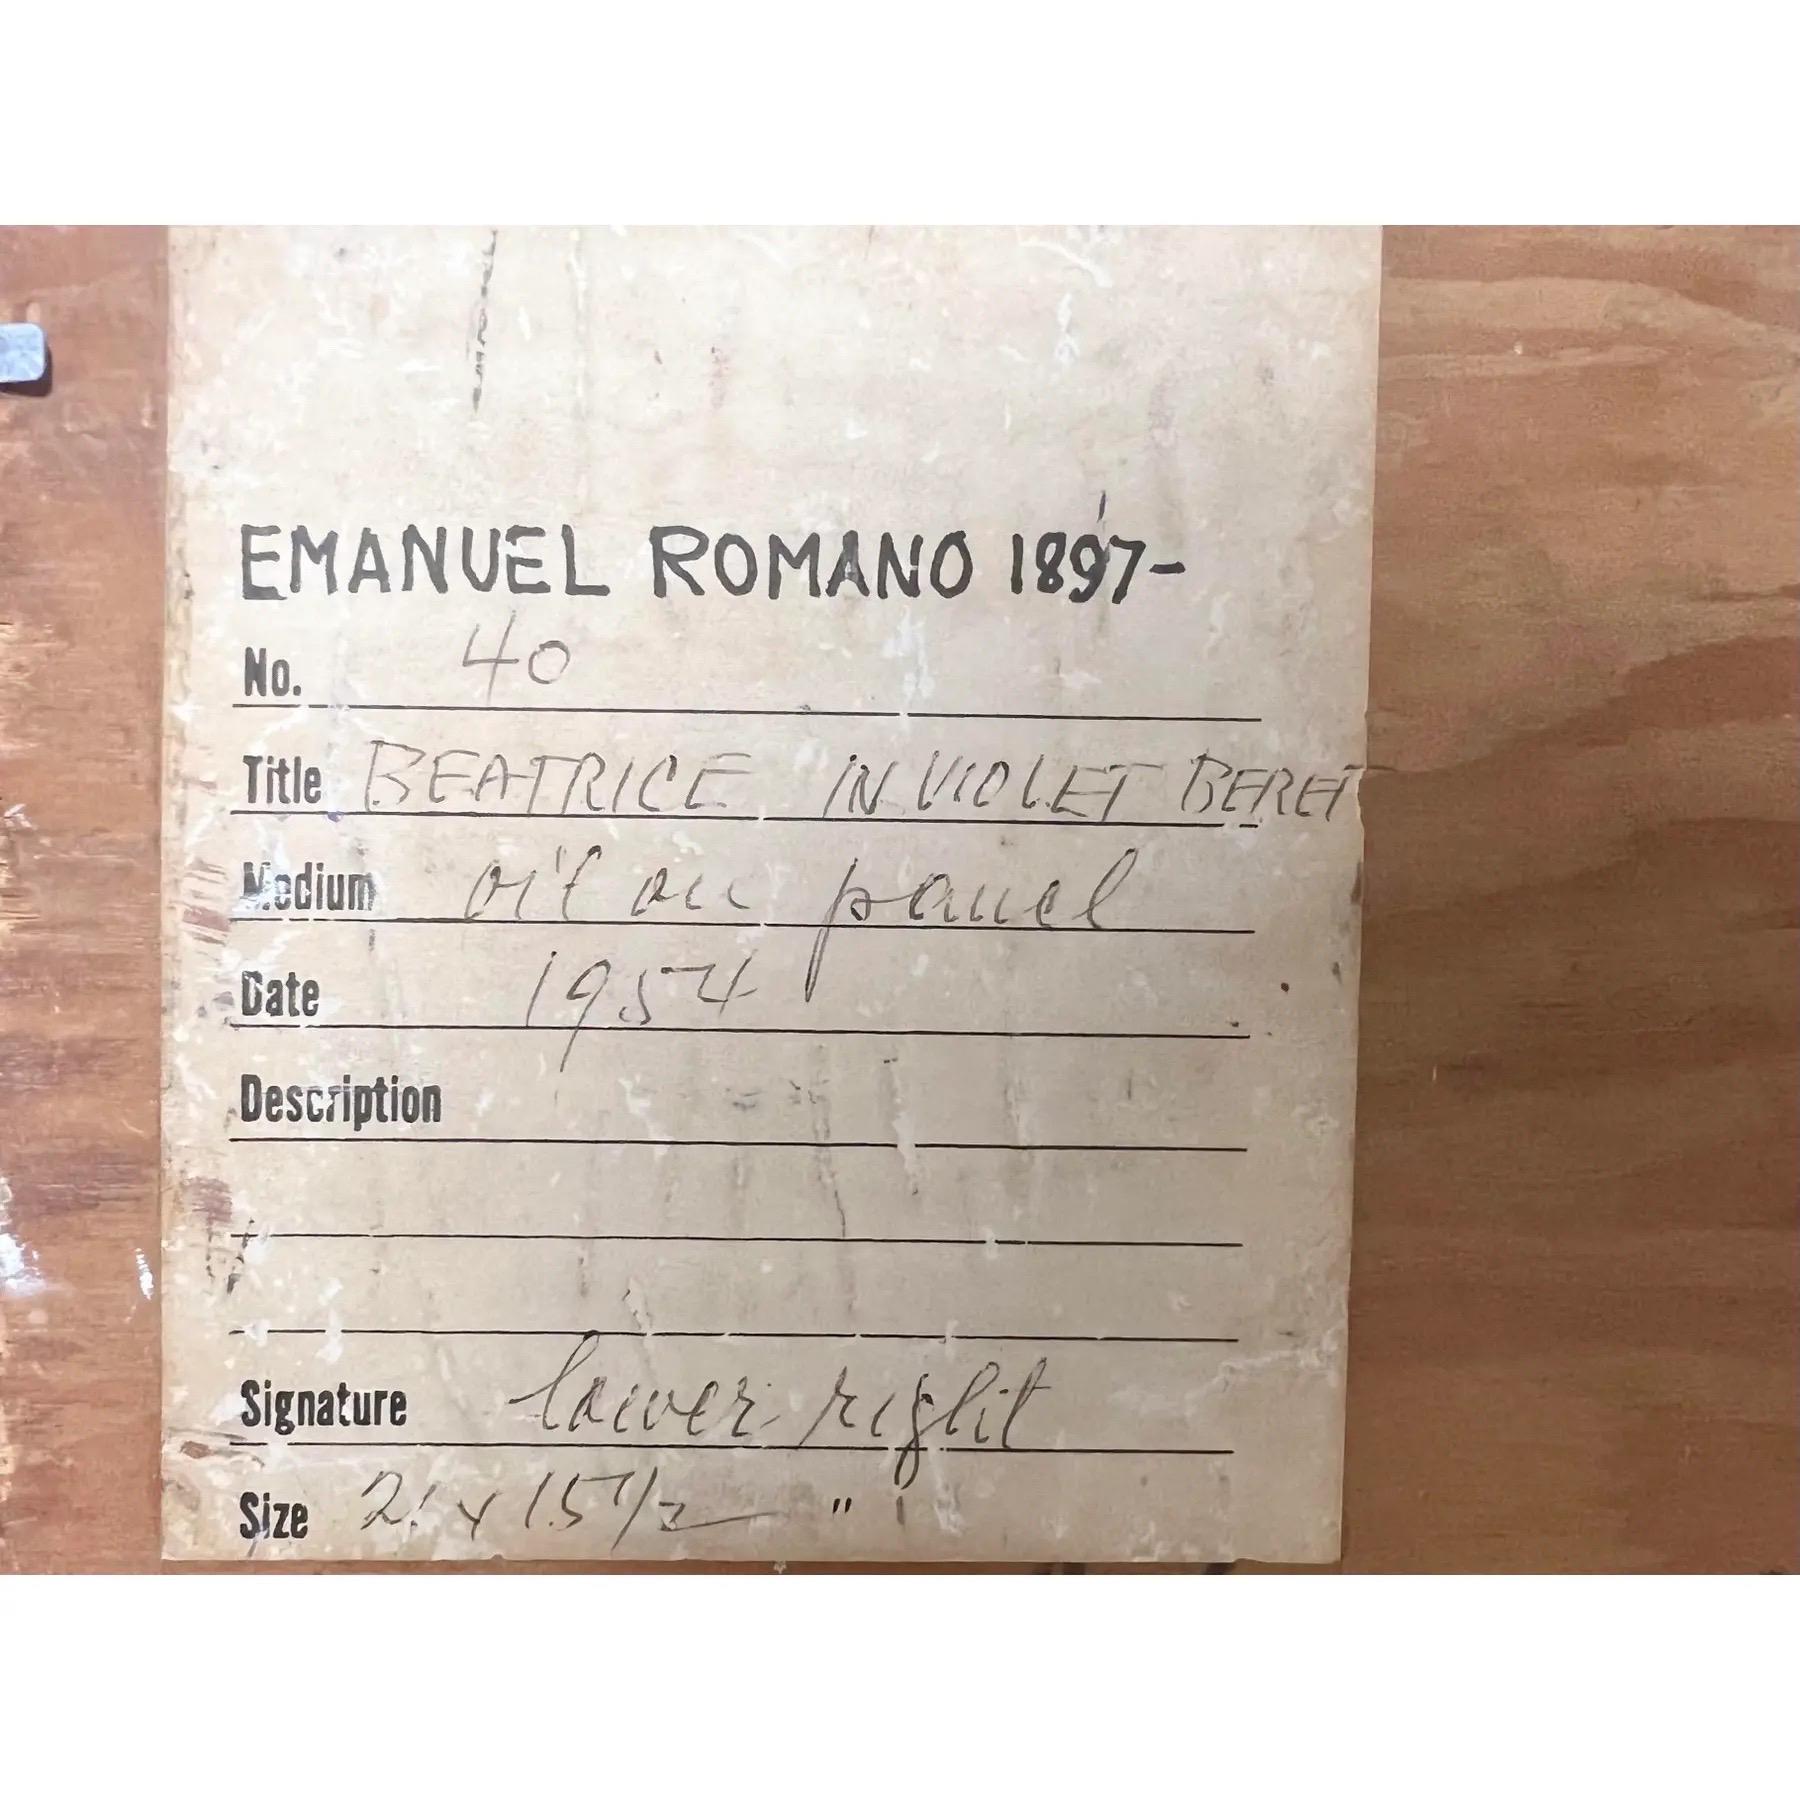 EMANUEL ROMANO 1897-
No. 40
Title BEATRICE IN VIOLET BERET
Medium oil on panel
Date 1954
Description
Signature lower right
Size 21 x 15 1/2 "